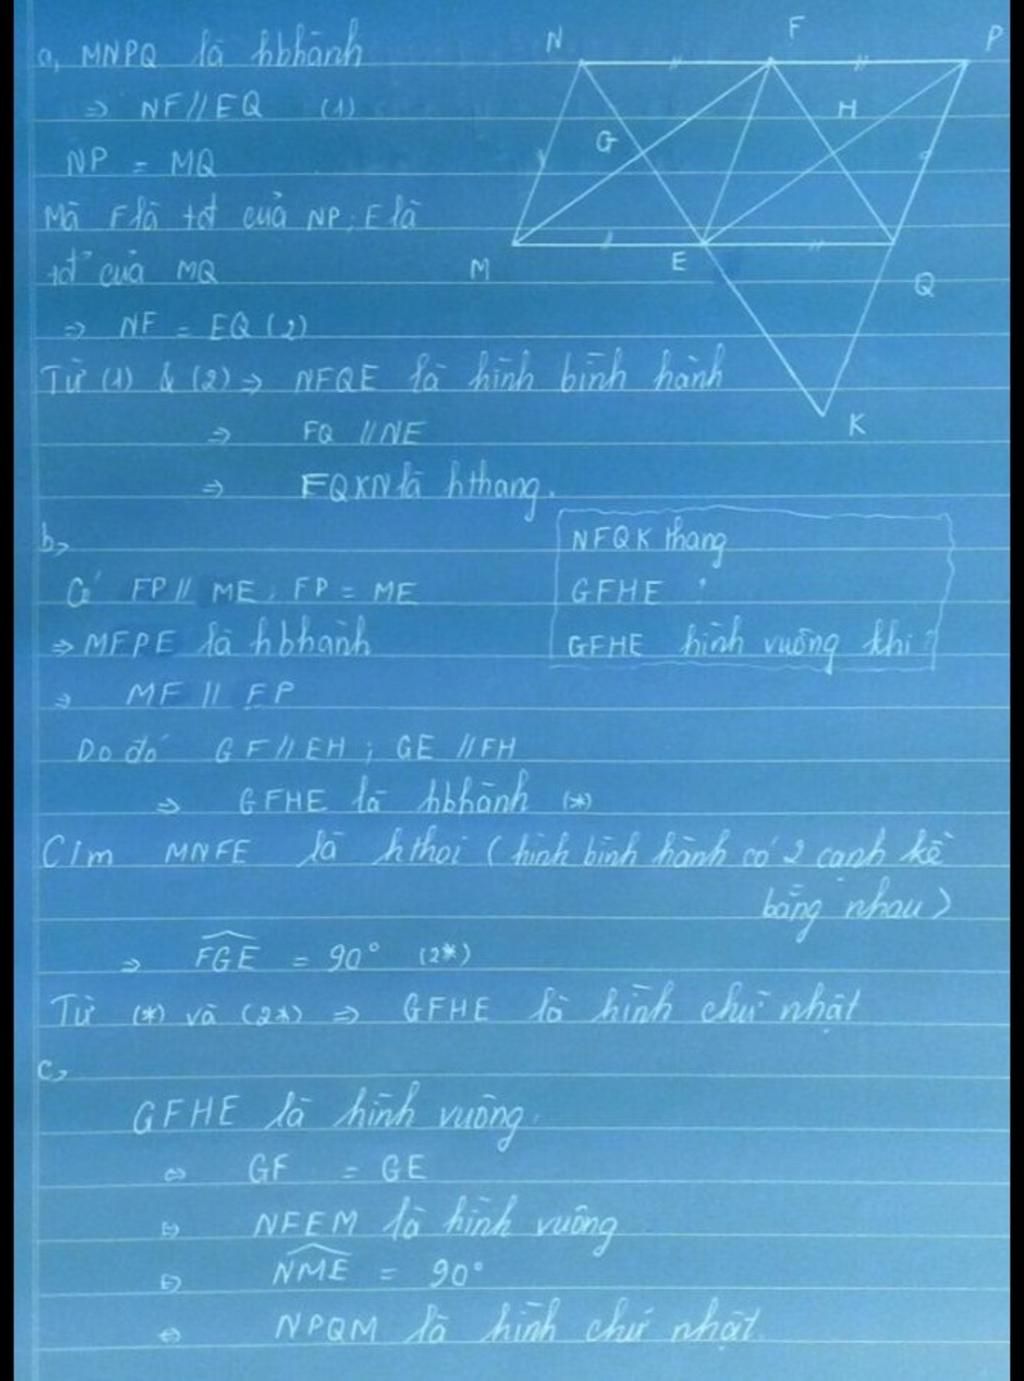 N F P
a, MNPQ là hbhành
⇒ NF // EQ (1)
H
G
NP = MQ
Mà F là tđ của NP; E là
M E Q
tđ của MQ
⇒ NF = EQ (2)
Từ (1) & (2) ⇒ NFQE là hình bình hành
K
⇒ FQ // NE
⇒ FQKN là hthang.
b,
NFQK thang
Có FP // ME, FP = ME
GFHE ?
⇒ MFPE là hbhành
GFHE hình vuông khi?
⇒ MF // EP
Do đó GF // EH ; GE // FH
⇒ GFHE là hbhành (*)
C/m MNFE là hthoi (hình bình hành có 2 cạnh kề
bằng nhau)
⇒ FGE = 90° (2*)
Từ (*) và (2*) ⇒ GFHE là hình chữ nhật
c,
GFHE là hình vuông.
⇔ GF = GE
⇔ NFEM là hình vuông
⇔ NME = 90°
⇔ NPQM là hình chữ nhật.